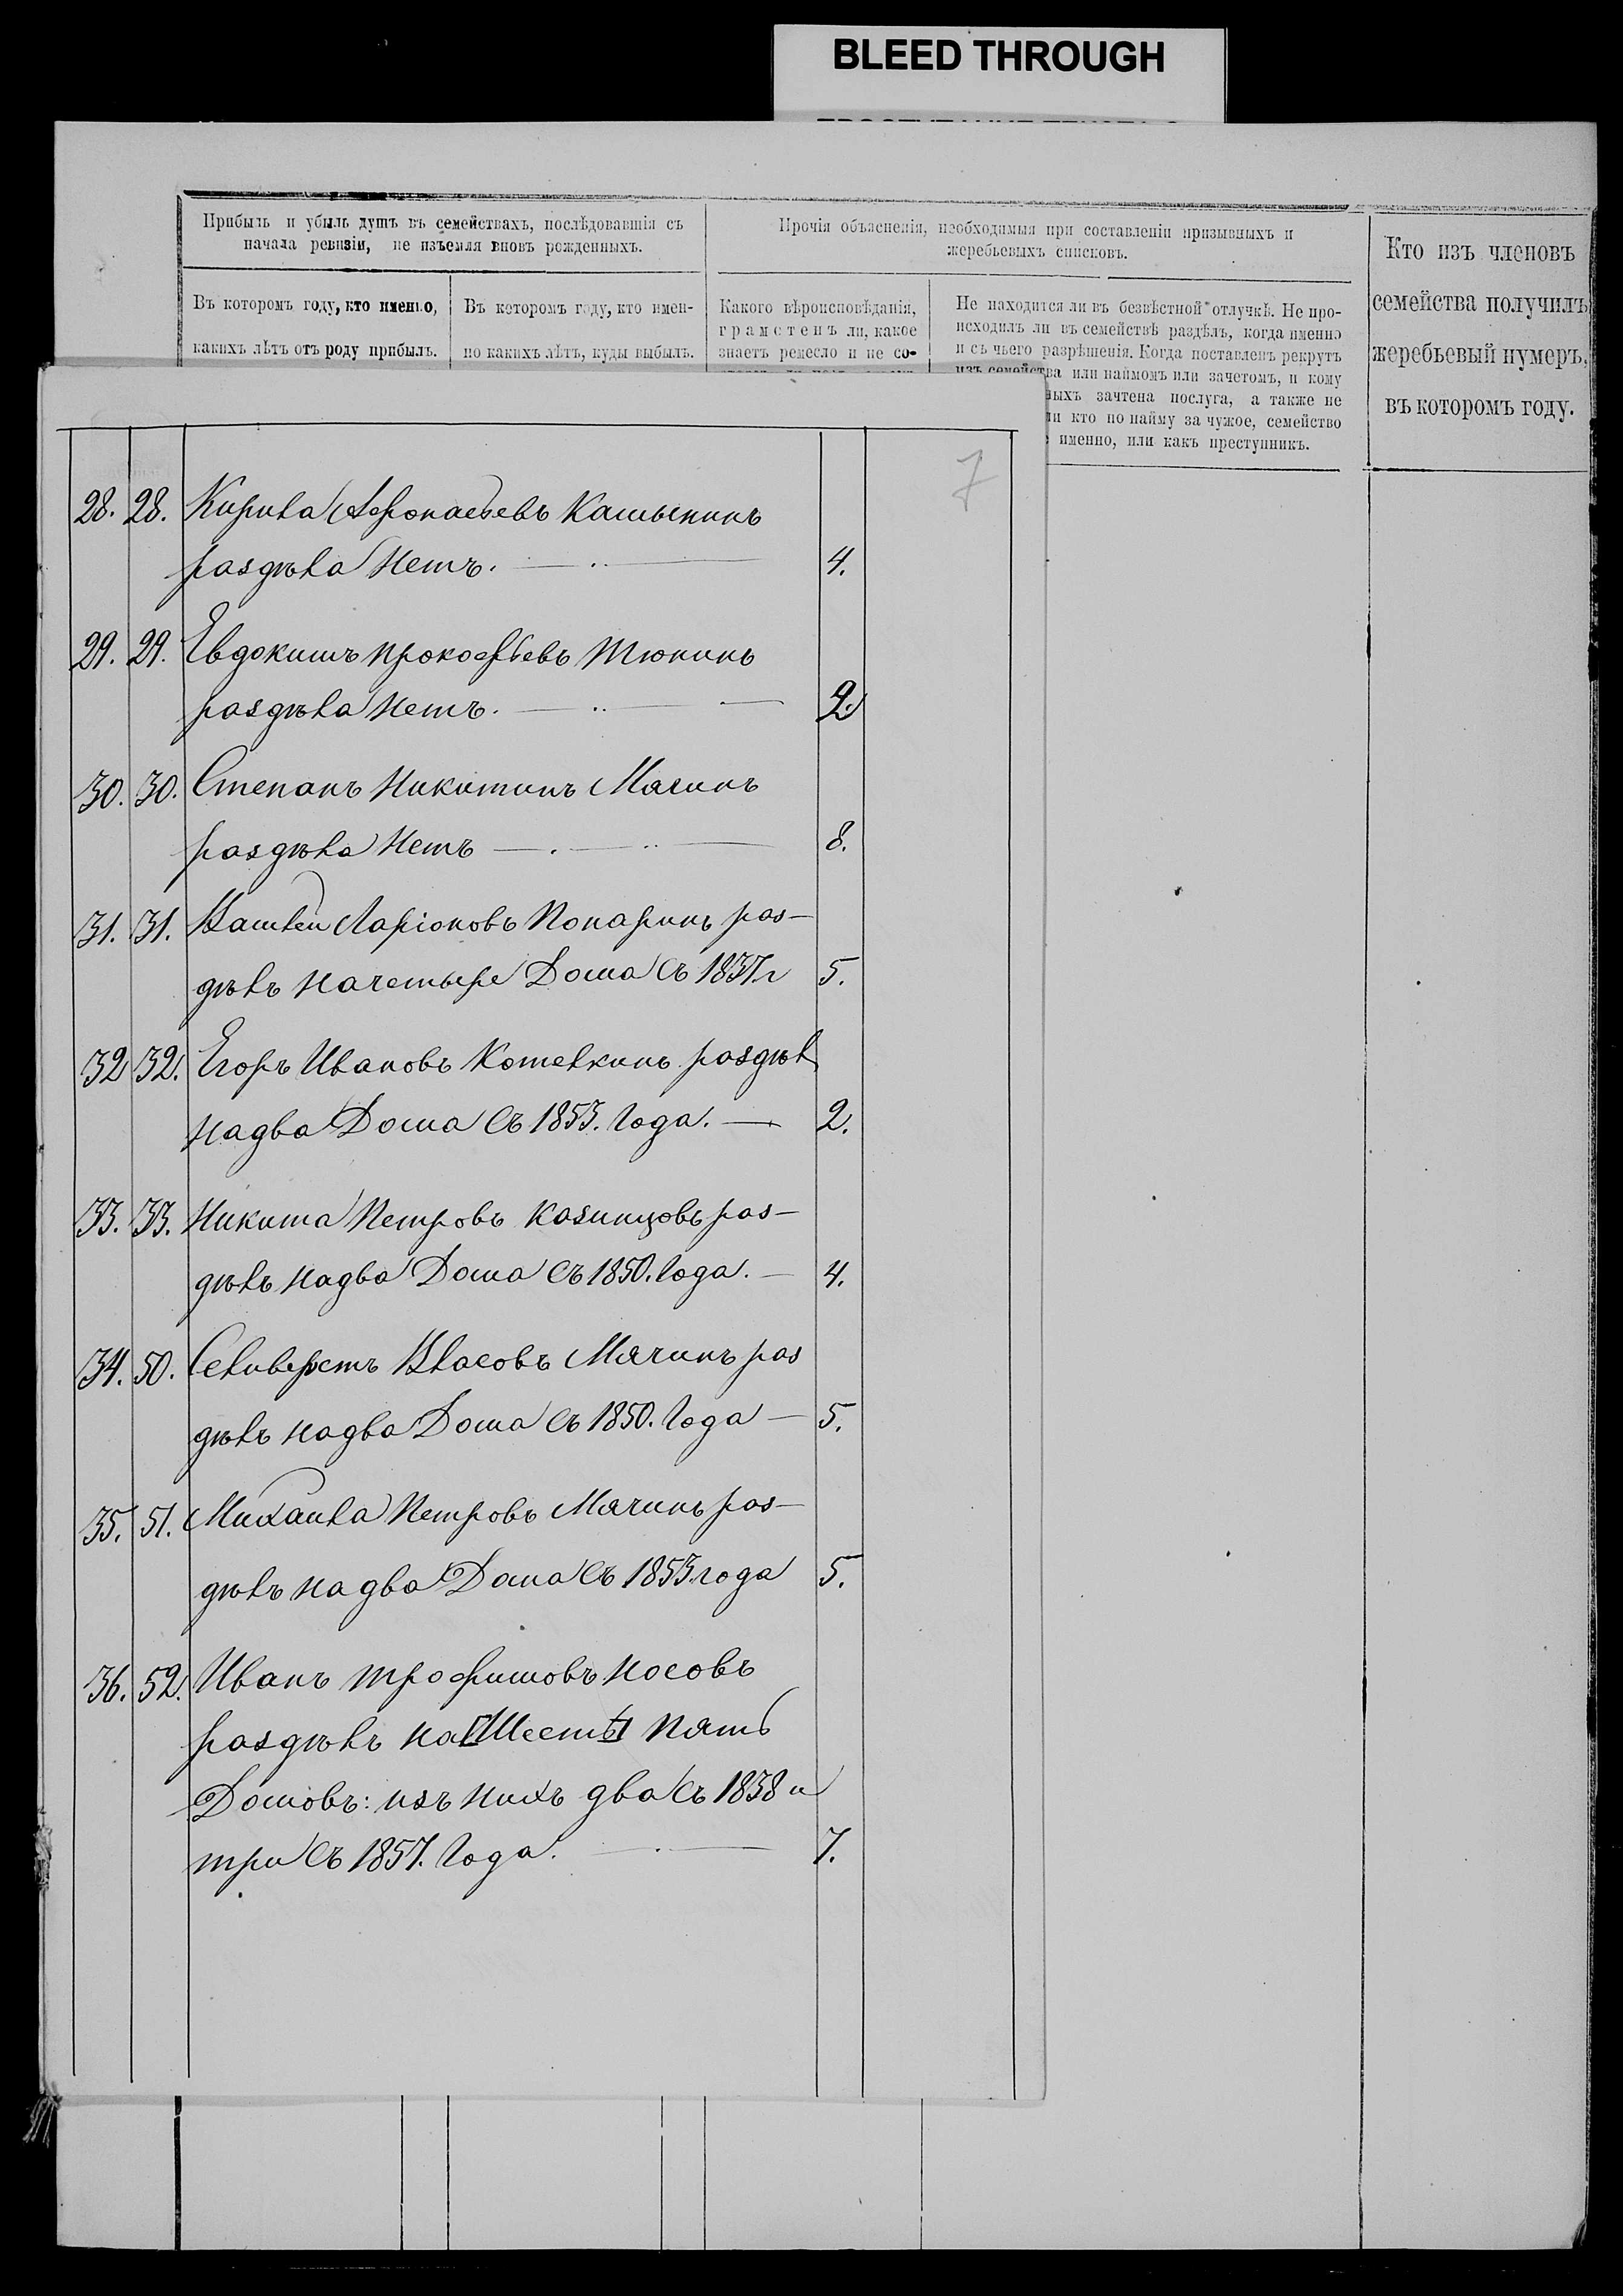 BLEED THROUGH
Прибыль и убыль душъ въ семействахъ, послѣдовавшія съ
начала ревизіи, не изъемля вновь рожденныхъ.
Прочія объясненія, необходимыя при составленіи призывныхъ и
жеребьевыхъ списковъ.
Кто изъ членовъ
семейства получилъ
жеребьевый нумеръ,
въ которомъ году.
Въ которомъ году, кто именно,
какихъ лѣтъ отъ роду прибылъ.
Въ которомъ году, кто имен-
но какихъ лѣтъ, куды выбылъ.
Какого вѣроисповѣданія,
грамотенъ ли, какое
знаетъ ремесло и не со-
Не находится ли въ безвѣстной отлучкѣ. Не про-
исходилъ ли въ семействѣ раздѣлъ, когда именно
и съ чьего разрѣшенія. Когда поставленъ рекрутъ
изъ семейства или наймомъ или зачетомъ, и кому
ныхъ зачтена послуга, а также не
ли кто по найму за чужое, семейство
именно, или какъ преступникъ.
7
28. 28. Кирила Аѳонасьевъ
раздѣла Нетъ. 4.
29. 29. Евдокимъ Прокофьевъ Тюнинъ
раздѣла Нетъ. 2.
30. 30. Степанъ Никитинъ Мячинъ
раздѣла Нетъ 8.
31. 31. Ларіоновъ Попаринъ раз-
дѣлъ на четыре Дома Съ 1837. г 5.
32 32. Егоръ Ивановъ Котелкинъ раздѣл
на два Дома Съ 1853. Года. 2.
33. 33. Никита Петровъ Казинцовъ раз-
дѣлъ на два Дома Съ 1850. Года. 4.
34. 50. Селиверстъ Власовъ Мячинъ раз
дѣлъ на два Дома Съ 1850. Года 5.
35. 51. Михаила Петровъ Мячинъ раз-
дѣлъ на два Дома Съ 1853 года 5.
36. 52. Иванъ Трофимовъ Носовъ
раздѣлъ на [Шесть] Пять
Домовъ: изъ нихъ два Съ 1838 и
три Съ 1857. Года. 7.